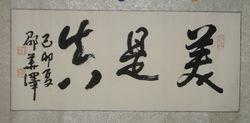 美是真
己卯夏
邵華澤